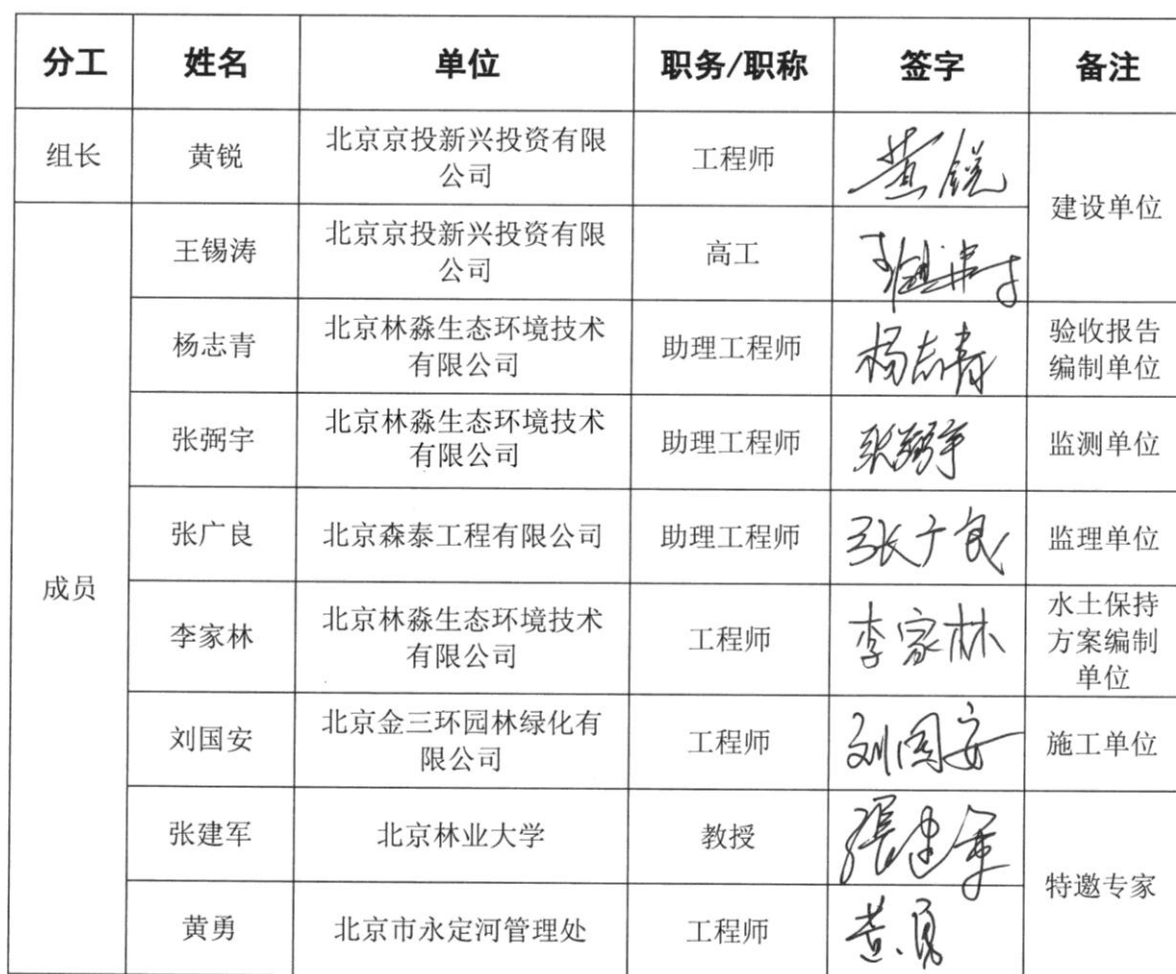 分工 姓名 单位 职务/职称 签字 备注
组长 黄锐 北京京投新兴投资有限
公司 工程师 黄锐 建设单位
成员 王锡涛 北京京投新兴投资有限
公司 高工 王锡涛
杨志青 北京林淼生态环境技术
有限公司 助理工程师 杨志青 验收报告
编制单位
张弼宇 北京林淼生态环境技术
有限公司 助理工程师 张弼宇 监测单位
张广良 北京森泰工程有限公司 助理工程师 张广良 监理单位
李家林 北京林淼生态环境技术
有限公司 工程师 李家林 水土保持
方案编制
单位
刘国安 北京金三环园林绿化有
限公司 工程师 刘国安 施工单位
张建军 北京林业大学 教授 張建军 特邀专家
黄勇 北京市永定河管理处 工程师 黄勇